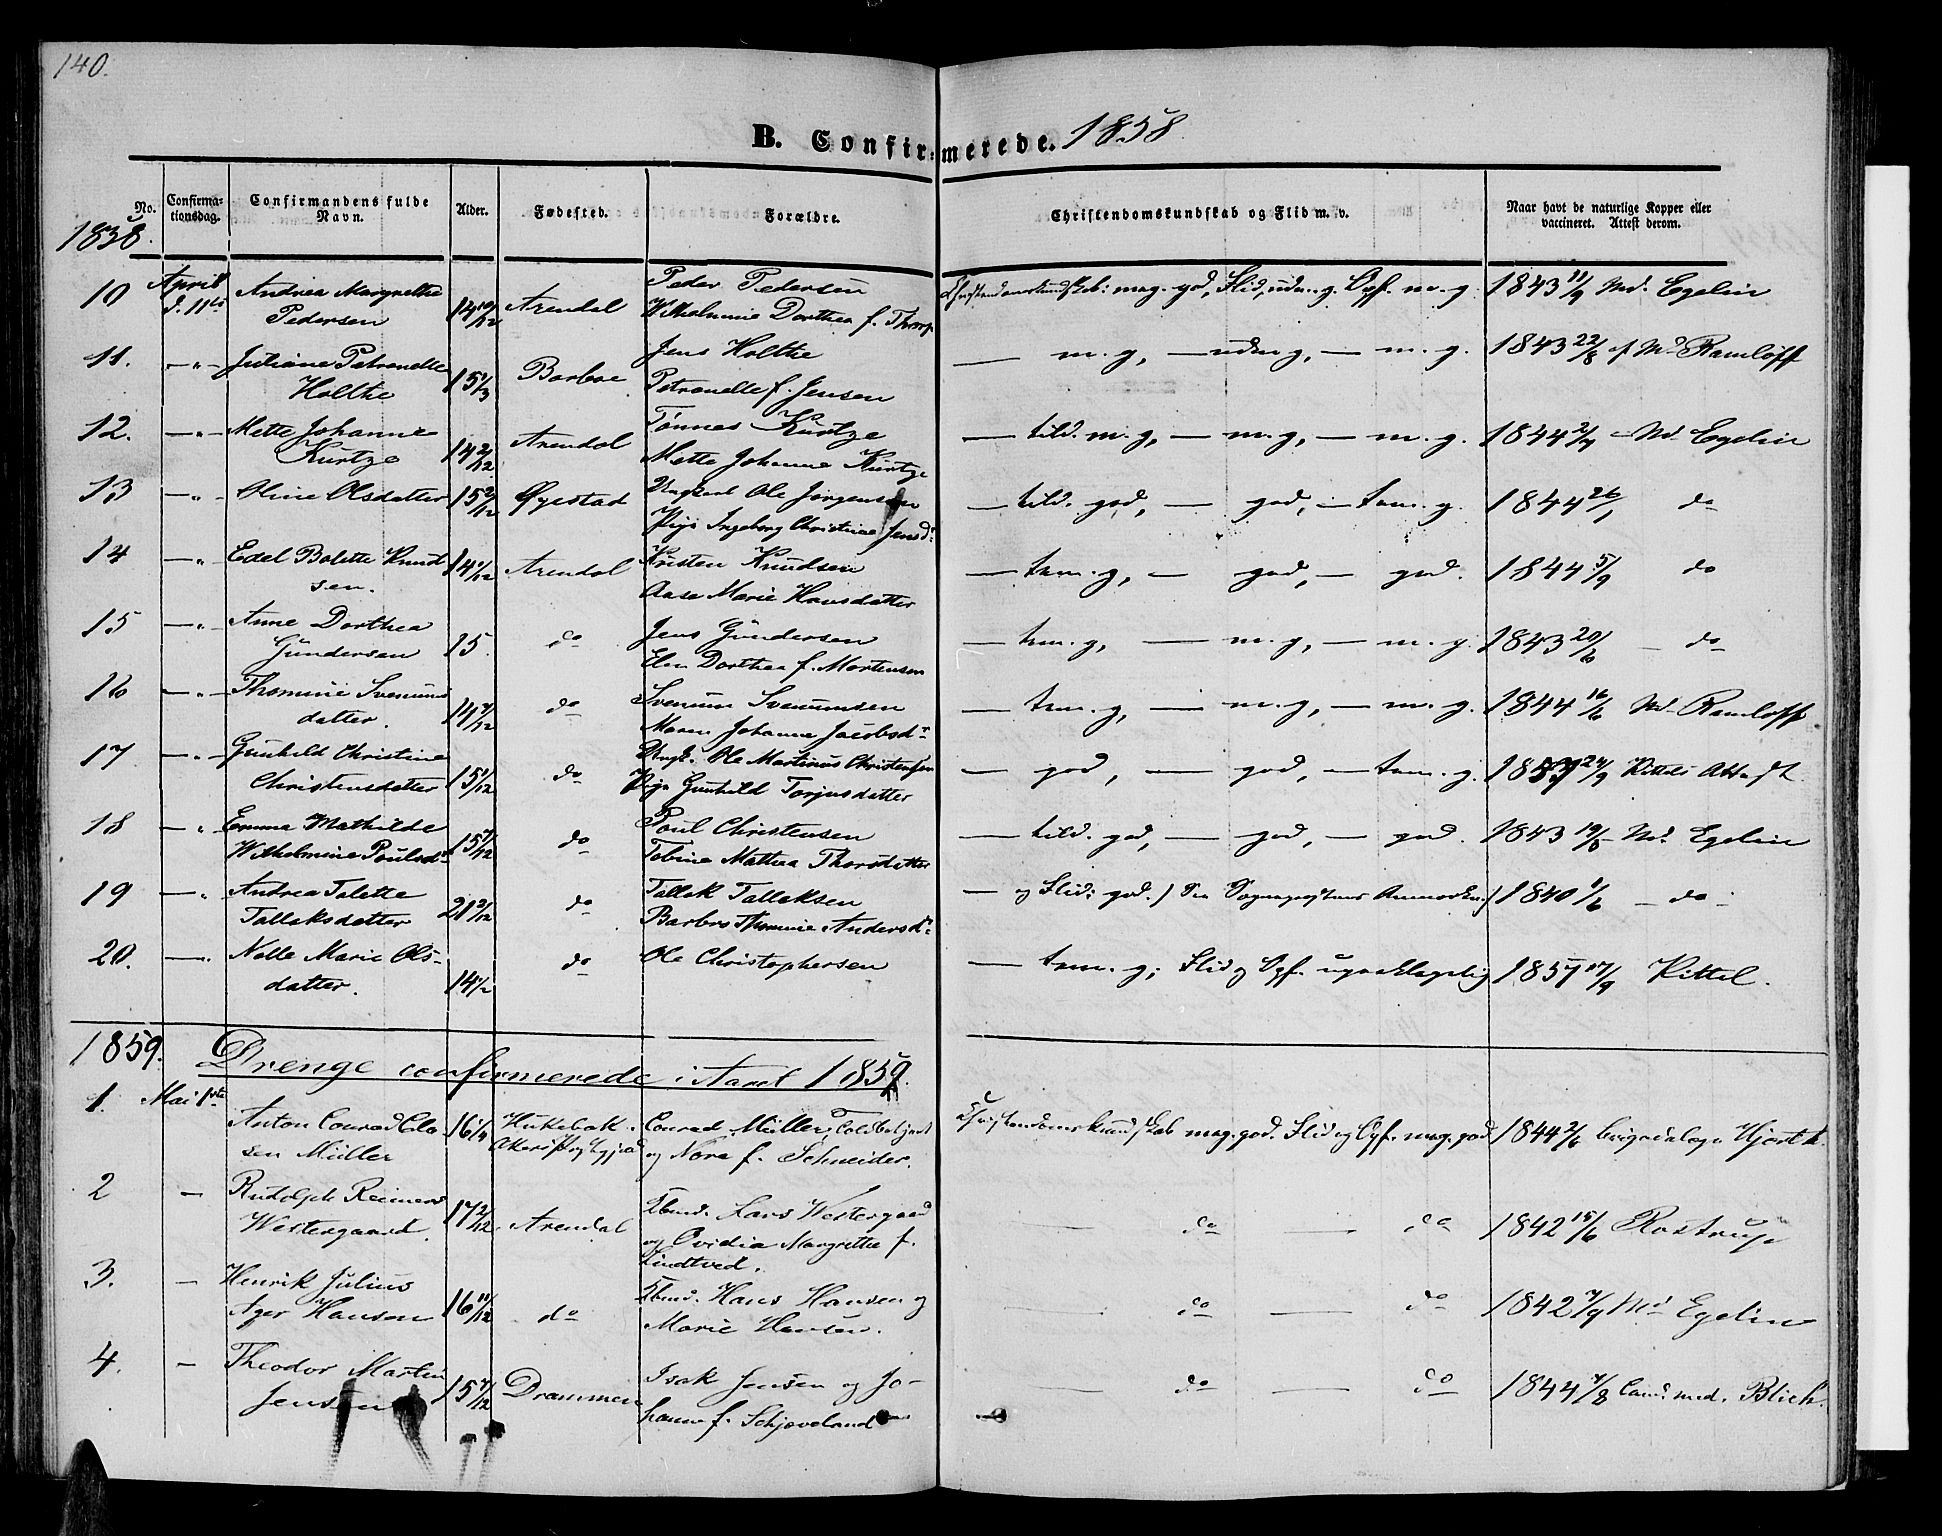 140.
B. Confirmerede. 1858
No. Confirmationsdag. Confirmandens fulde Navn. Alder. Fødested. Forældre. Christendomskundskab og Flid m. v. Naar havt de naturlige Kopper eller vaccineret. Attest derom.
1858.
10 April d. 11te Andrea Margrethe Pedersen 14 10/12 Arendal Peder Pedersen
Wilhelmine Dorthea f. Christendomskundskab: meg. god, Flid, udm. g. Opf. m. g. 1843 11/9 Md. Egelin
11. —"— Juliane Petronelle Holthe 15 1/3 Barboe Jens Holthe
Petronelle f. Jensen — m. g, — udm g, — m. g. 1843 22/8 Ramløff
12. —"— Mette Johanne Kurtze 14 2/12 Arendal Tønnes Kurtze
Mette Johanne Kurtze — tild. m. g, — m. g, — m. g. 1844 2/7 Md Egelin
13 —"— Oline Olsdatter 15 2/12 Øyestad Ungkarl Ole Jørgensen
Pige Ingeborg Christine Jensd: — tild. god, — god, — tem. g. 1844 26/1 do
14 —"— Edel Bolette Knudsen. 14 1/12 Arendal Kristen Knudsen
Aase Marie Hansdatter — tem. g, — god, — god. 1844 5/9 do
15 —"— Anne Dorthea Gundersen 15. do Jens Gundersen
Elen Dorthea f. Mortensen — tem. g, — m. g, — m. g. 1843 20/6 — do
16 —"— Thomine Svenumsdatter. 14 7/12 do Svenum Svenumsen
Maren Johanne Jacobsdr — tem. g, — m. g, — m. g. 1844 16/6 Md. Ramløff
17 —"— Gunhild Christine Christensdatter 15 1/12 do Ungk. Ole Martinus Christensen
Pige Gunhild Torjusdatter — god, — god, — tem. g. 1857 24/9 Kittels Attest
18 —"— Emma Mathilde Wilhelmine Poulsdr 15 7/12 do Poul Christensen
Tobine Mathea Thorsdatter — tild. god, — god, — god. 1843 19/8 Md. Egelin
19 —"— Andrea Talette Tallaksdatter 21 2/12 do Tallak Tallaksen
Barbro Thomine Andersd: — og Flid: god.) Sognepræstens 1840 1/6 — do
20. —"— Nelle Marie Olsdatter. 14 1/2 do Ole Christophersen — tem. g; Flid og Opf. upaaklagelig 1857 17/9 Kittel.
1859. Drenge confirmerede i Aaret 1859.
1. Mai 1ste Anton Conrad Müller 16 1/4 Conrad Müller,
og Nora f. Schneider. Christendomskundskab meg. god. Flid og Opf. meg. god 1844 2/6 Brigadelæge Hjort.
2 — Rudolph Reimers Westergaard. 17 2/12 Arendal Lars Westergaard
og Ovidia Margrethe f.
Lindtved. — do — do 1842 15/6 Rostrup
3. — Henrik Julius Ager Hansen 16 11/12 do Hans Hansen og
Marie Hansen. — do — do 1842 7/9 Md Egelin
4. — Theodor Martin Jensen 15 7/12 Drammen Isak Jensen og Johanne f. Schjøveland — do — do 1844 7/8 Cand. med. Blich.